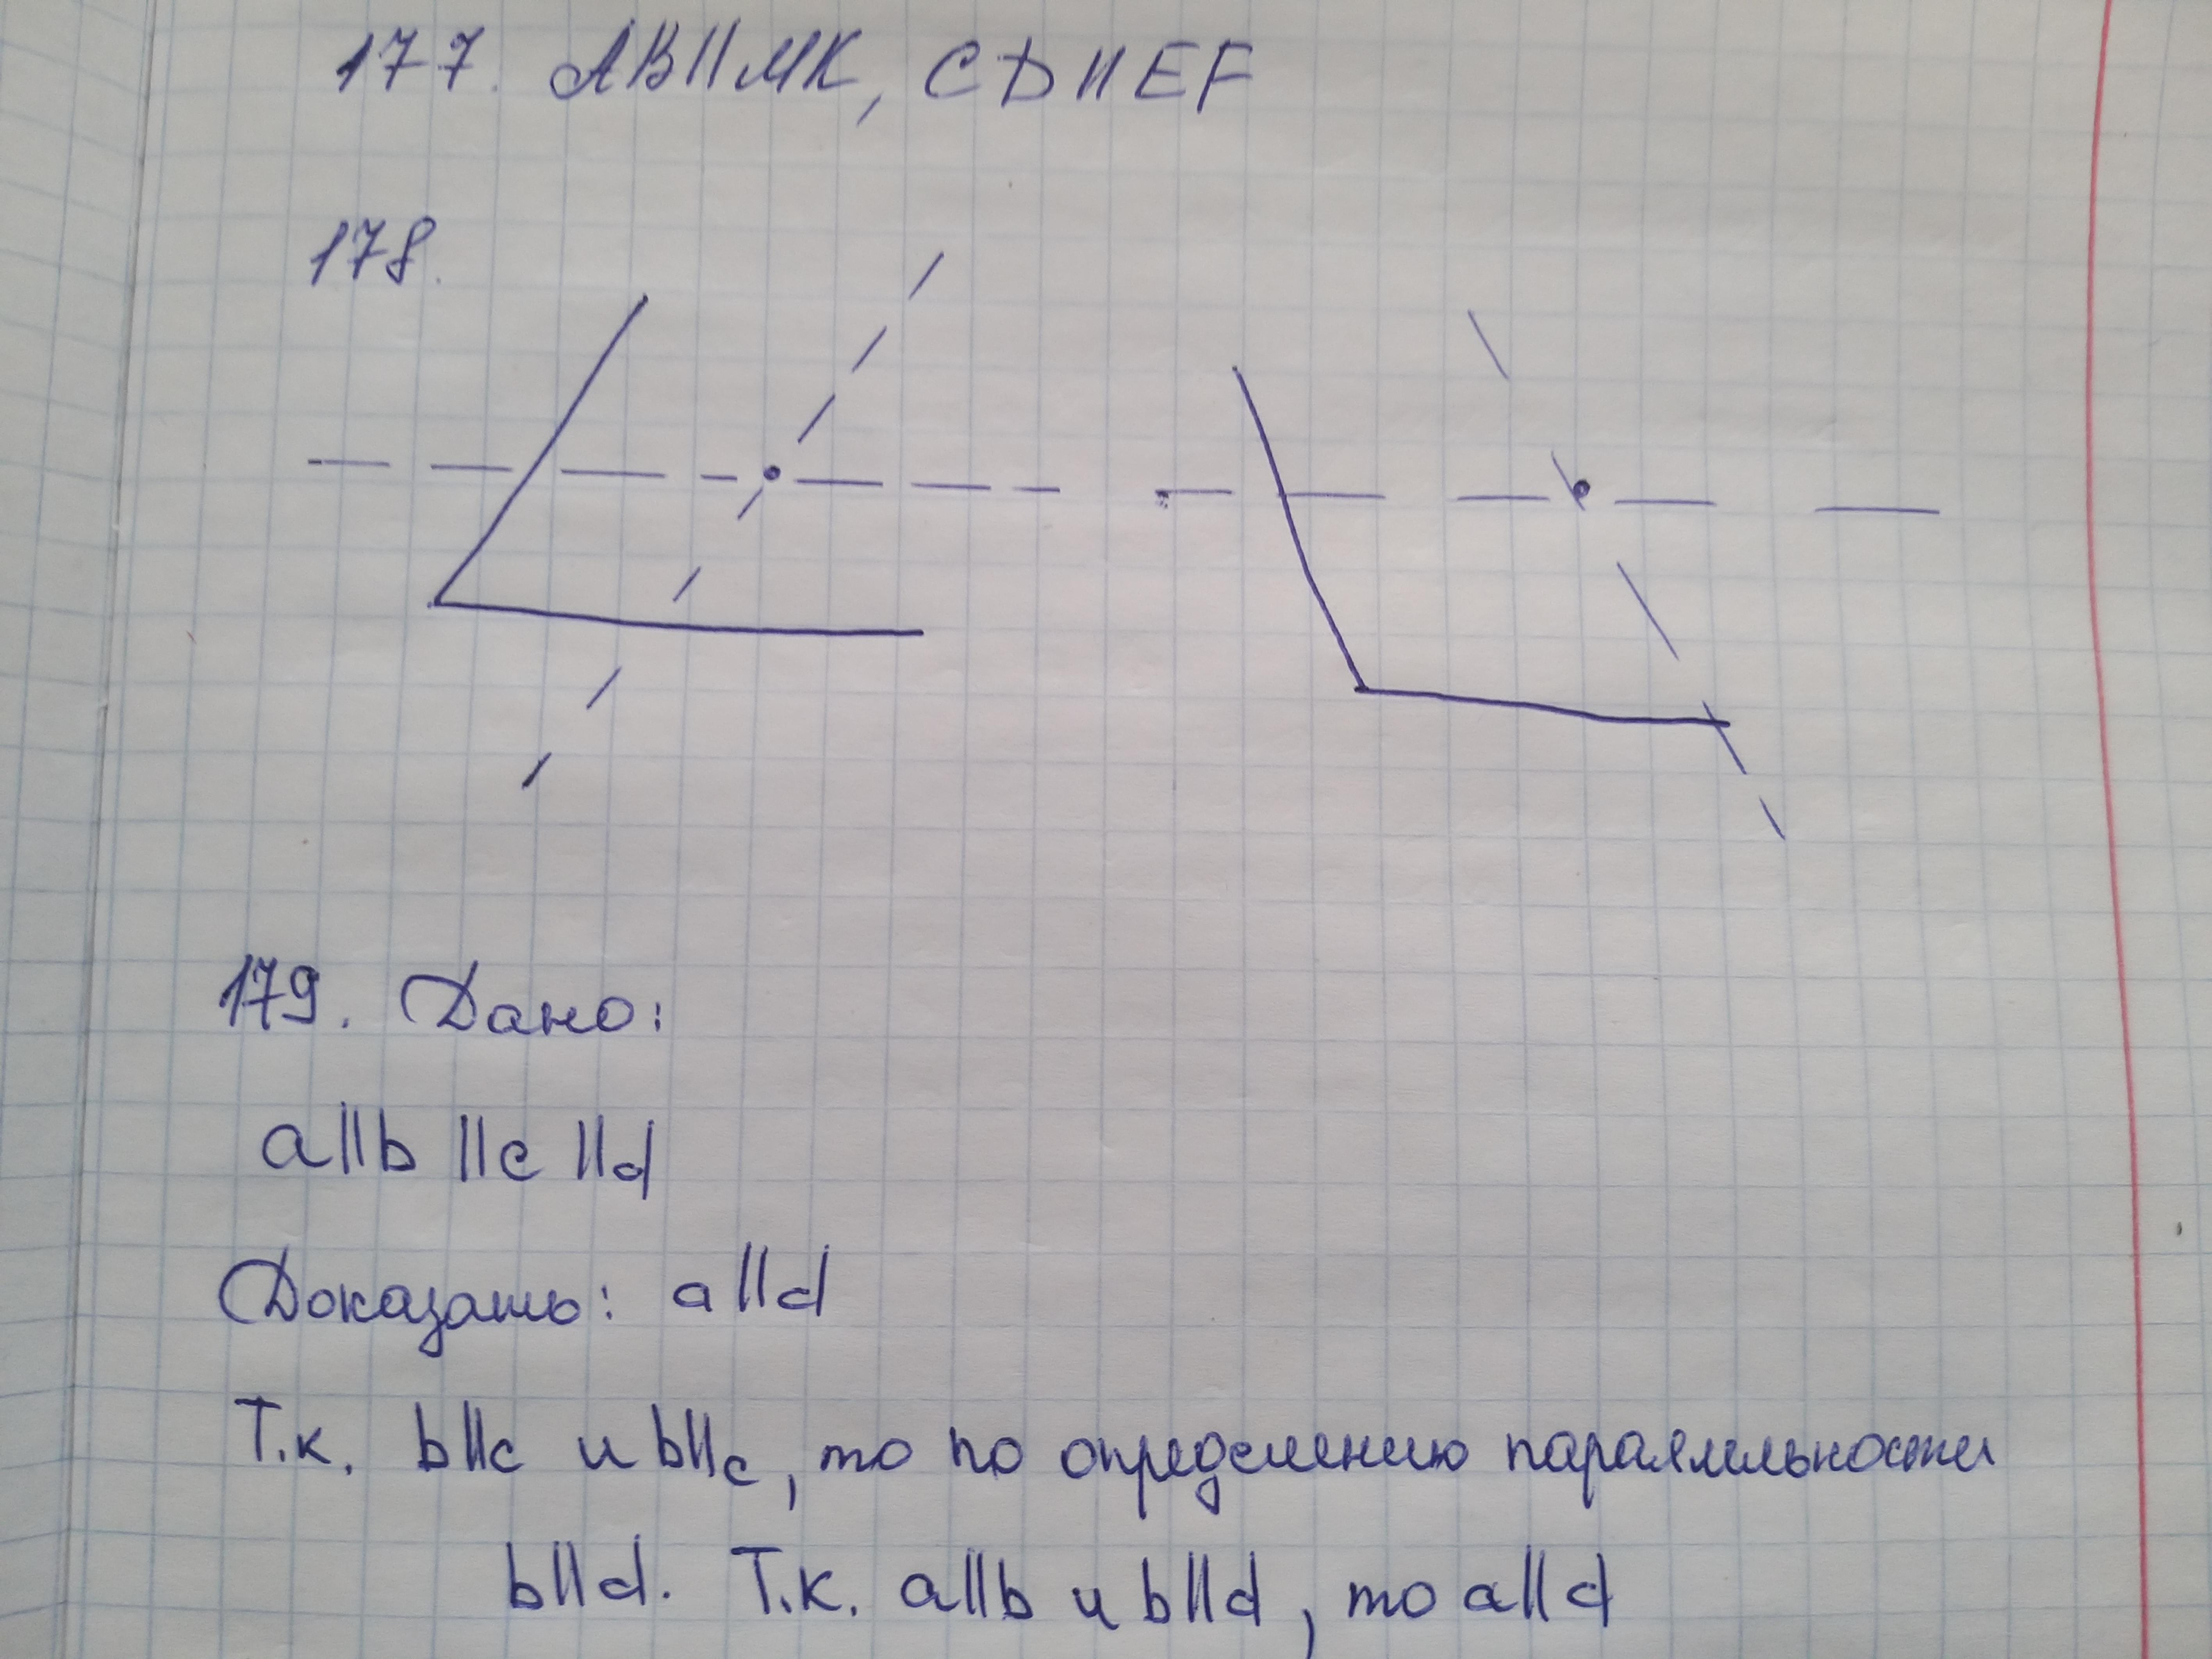 177. AB||MK, CD||EF
178.
179. Дано:
a||b ||c ||d
Доказать: a||d
Т.к. b||c и b||c, то по определению паралельности
b||d. Т.к. a||b и b||d, то a||d